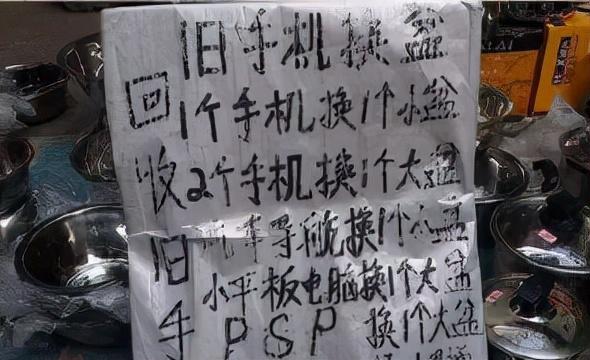 旧手机换盆
1个手机换1个小盆
2个手机换1个大盆
导航换1个小盆
小平板电脑换1个大盆
PSP 换1个大盆
回收旧手